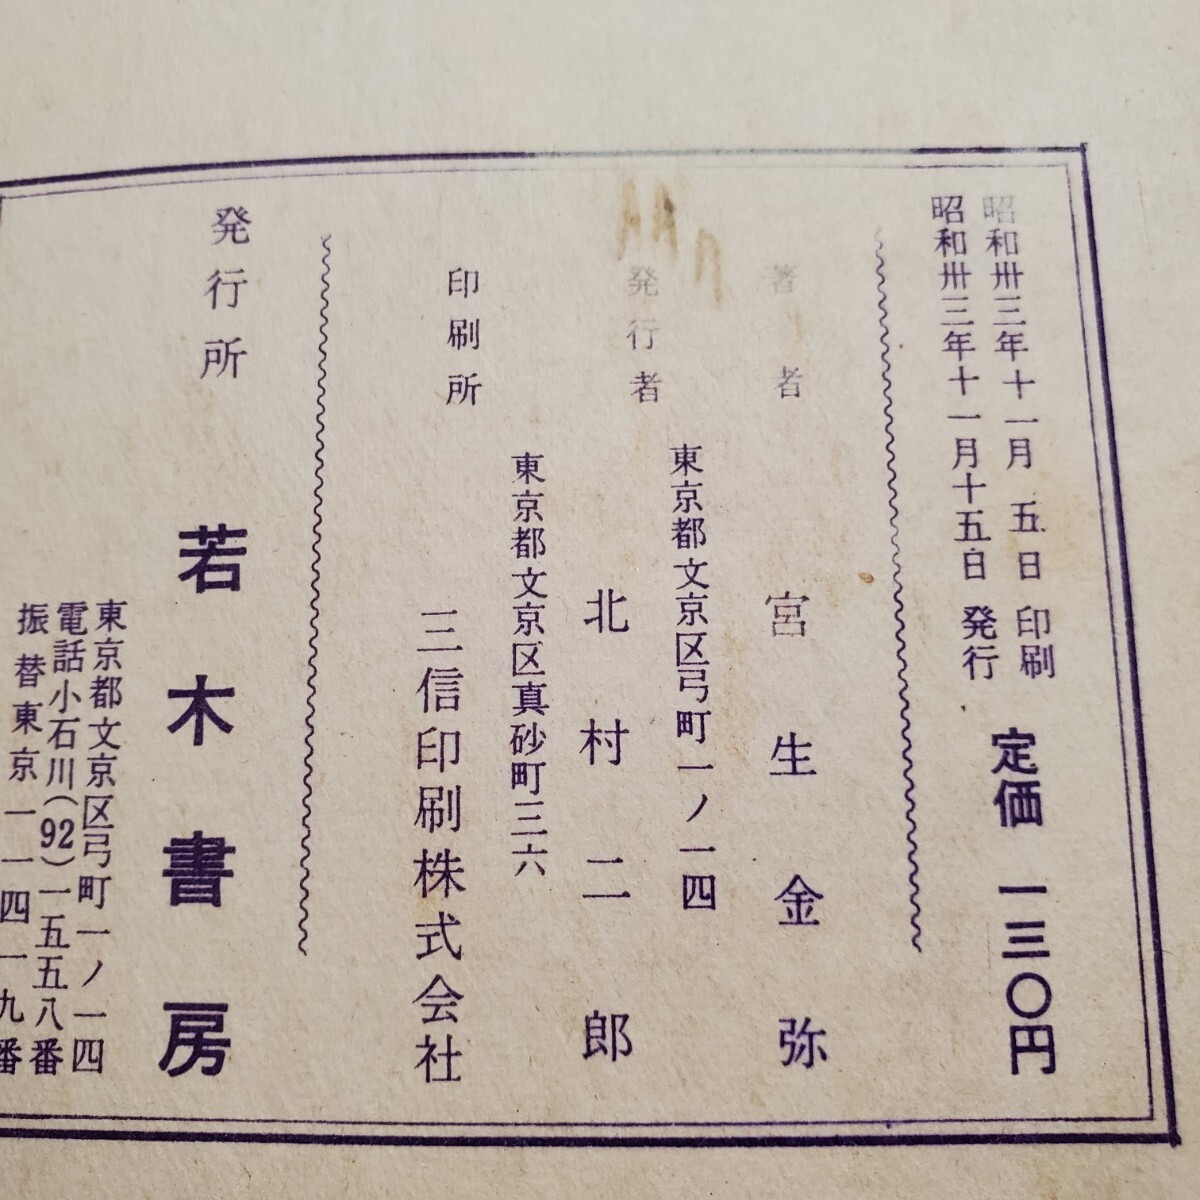 昭和卅三年十一月五日印刷
昭和卅三年十一月十五日発行
定価一三〇円
著者 宮生金弥
東京都文京区弓町一ノ一四
発行者 北村二郎
東京都文京区真砂町三六
印刷所 三信印刷株式会社
発行所 若木書房
東京都文京区弓町一ノ一四
電話小石川(92)一五五八番
振替東京一一四一九番